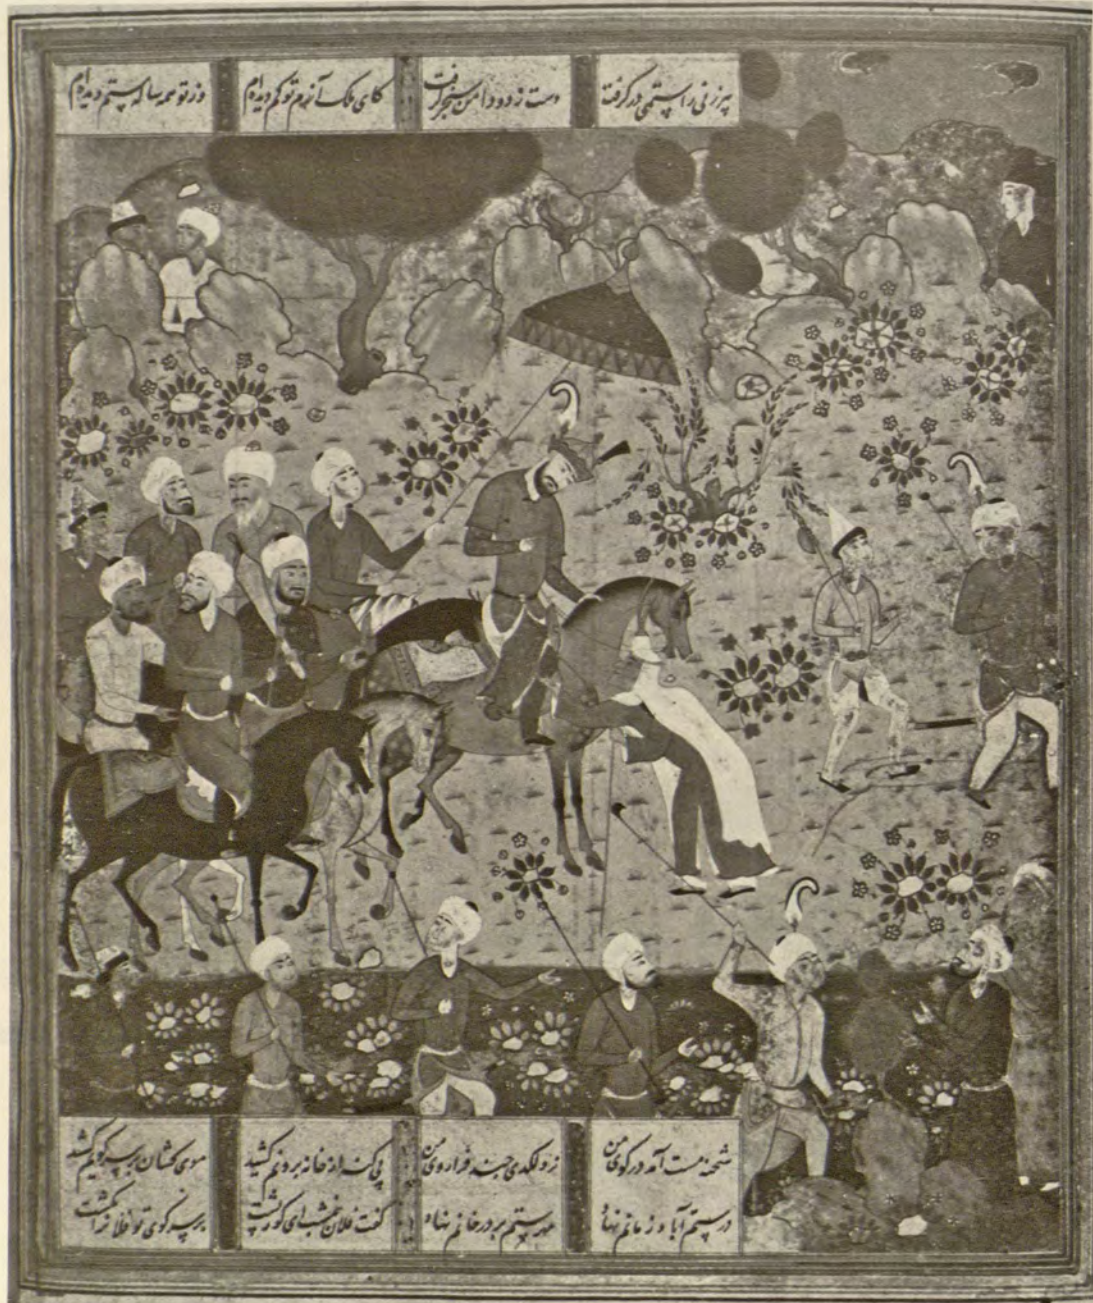 پیرزنی را ستمی درگرفت دست زد و دامن سنجر گرفت کای ملک آزرم تو کم دیده‌ام وز تو همه ساله ستم دیده‌ام
شحنه مست آمد در کوی من زد لکدی چند فرا روی من بی کنه از خانه برونم کشید موی کشان بر سر کویم کشید
در ستم آباد زمانم نهاد مهر ستم بر در خانم نهاد گفت فلان نیمشب ای کوژپشت بر سر کوی تو فلانرا که کشت